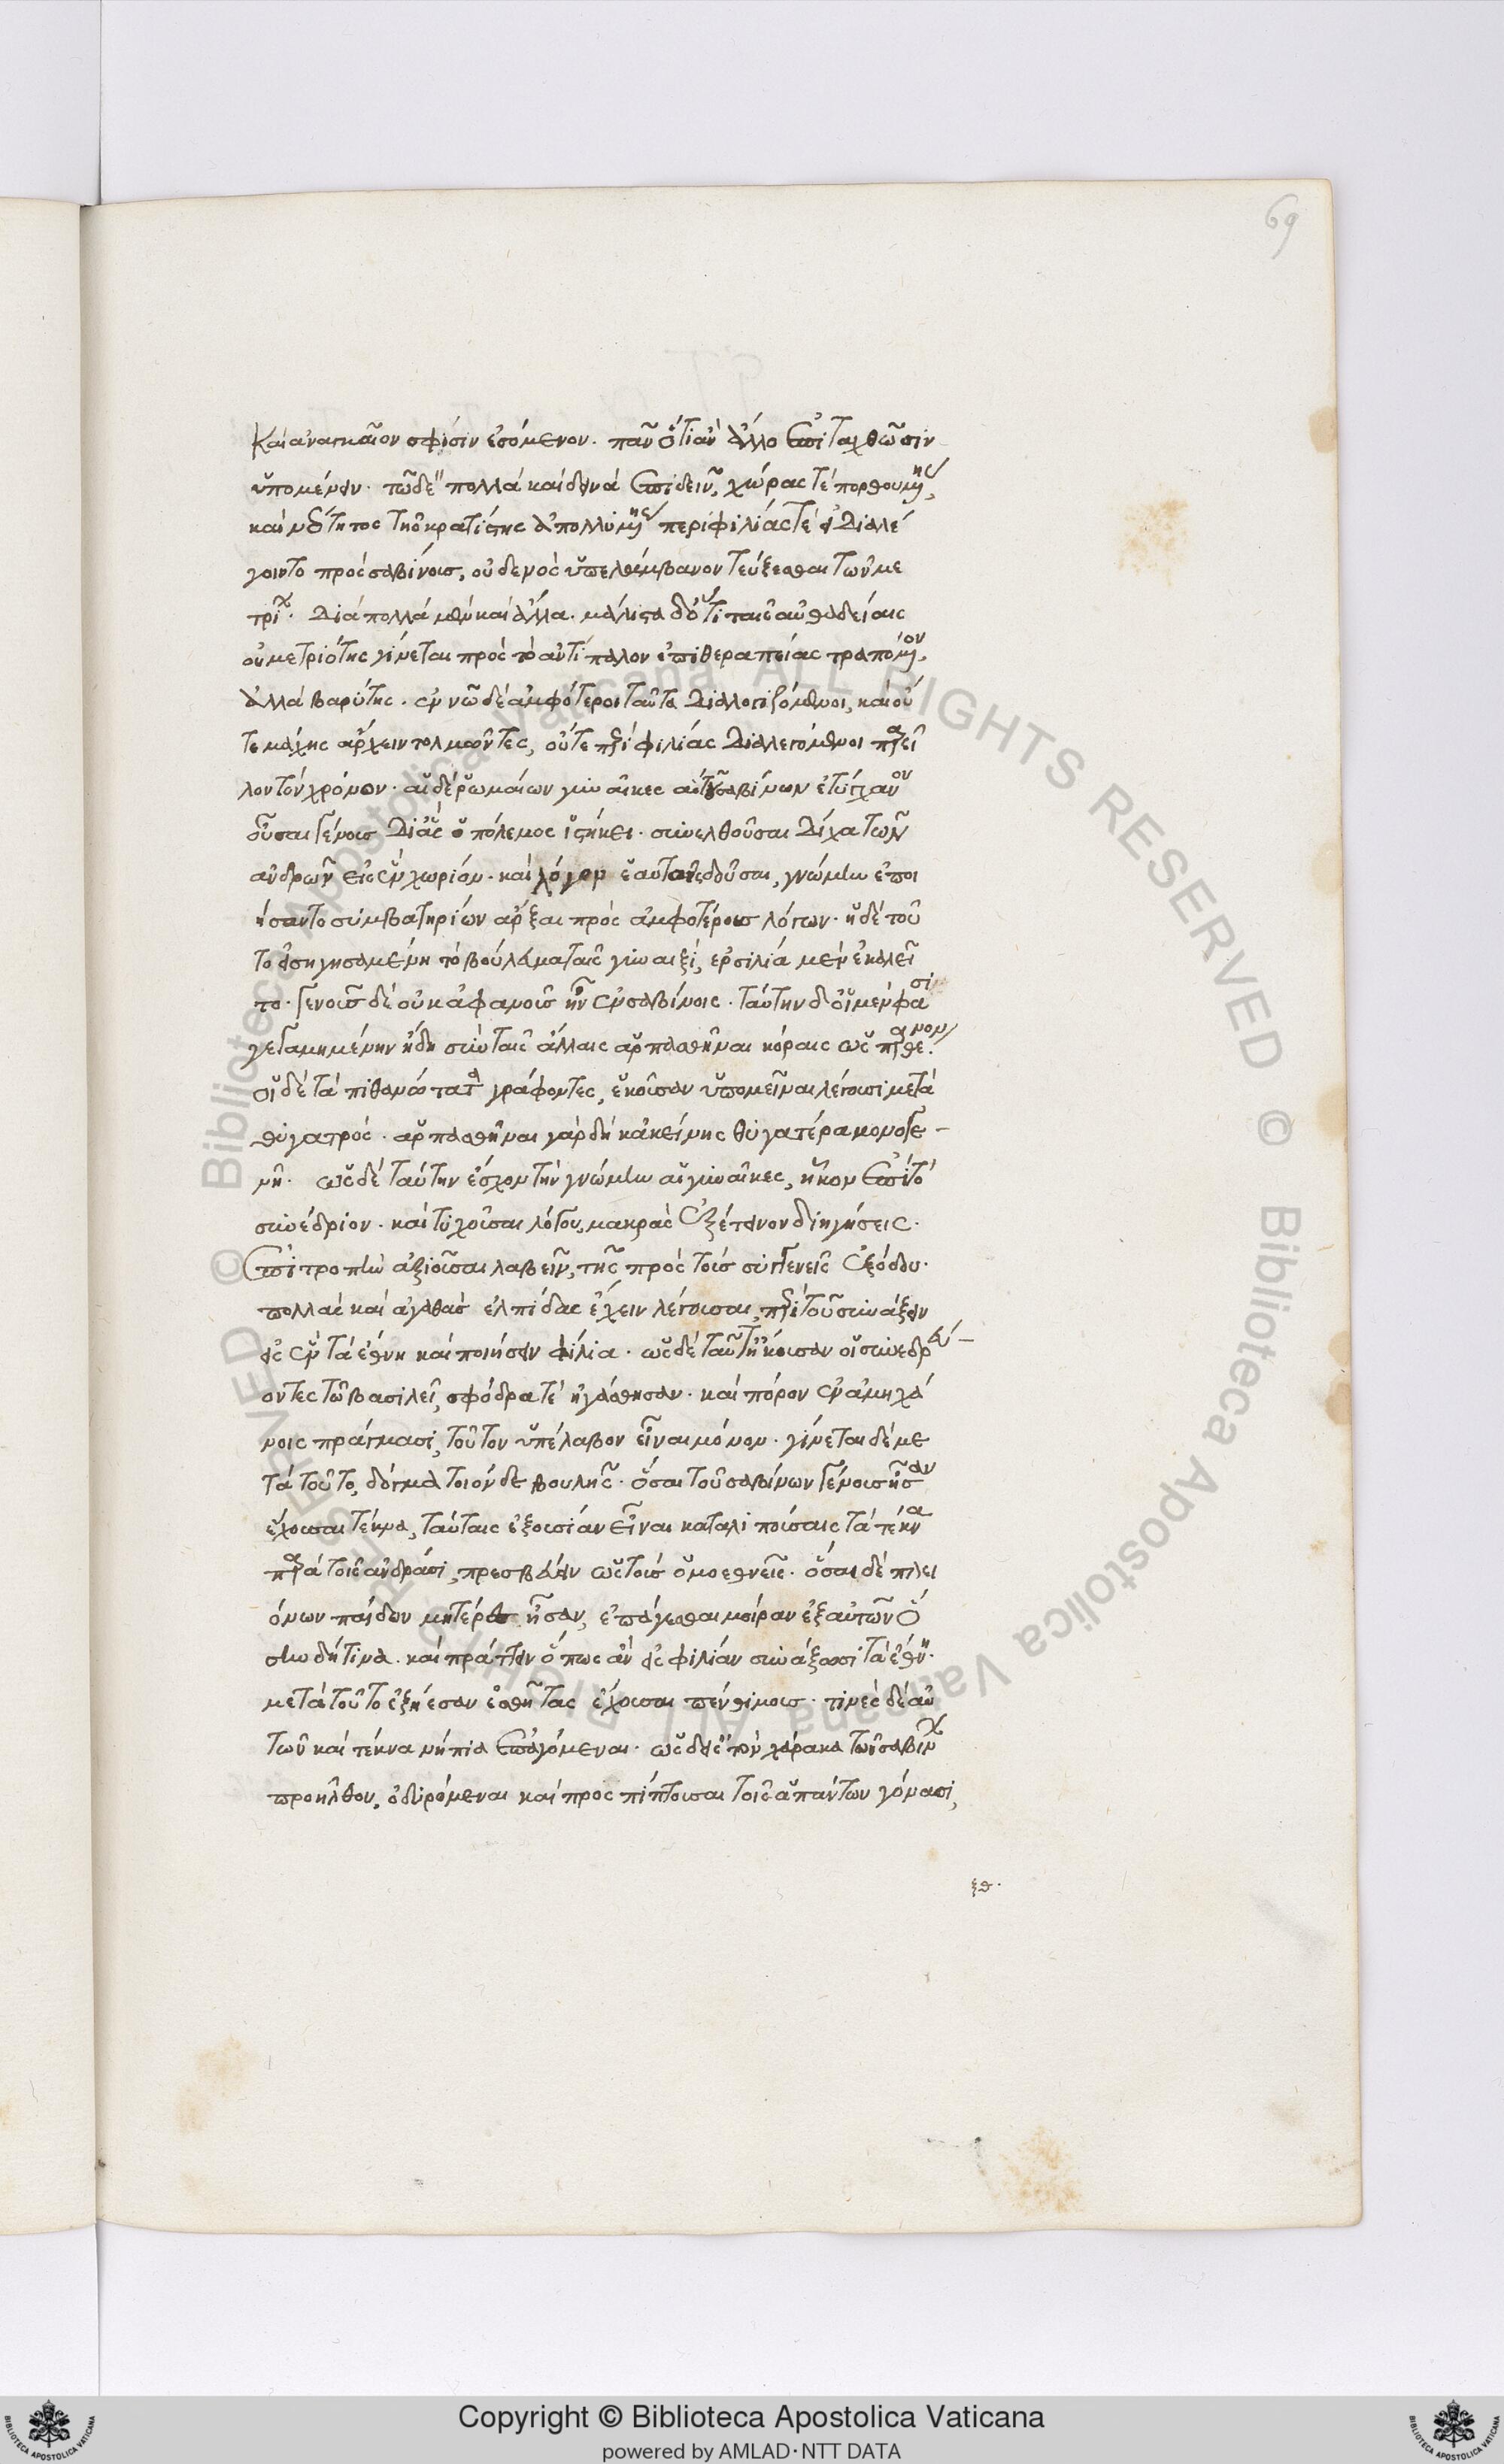 69
καὶ ἀναγκαῖον σφίσιν ἐσόμενον. πᾶν ὅτι ἂν ἄλλο ἐπιταχθῶσιν
ὑπομένειν. τῶ δὲ πολλὰ καὶ δεινὰ ἐπιδεῖν, χώρας τὲ πορθουμένης,
καὶ νεότητος τῆς κρατίστης ἀπολλυμένης περὶ φιλίας τὲ εἰ διαλέ
γοιντο πρὸς σαβίνους, οὐδενὸς ὑπελάμβανον τεύξεσθαι τῶν με
τρίων. διὰ πολλὰ μὲν καὶ ἄλλα. μάλιστα δ' ὅτι ταῖς αὐθαδείαις
οὐ μετριότης γίνεται πρὸς τὸ ἀντίπαλον ἐπὶ θεραπείας τραπόμενον,
ἀλλὰ βαρύτης. ἐν νῶ δὲ ἀμφότεροι ταῦτα διαλογιζόμενοι, καὶ οὔ
τε μάχης ἄρχειν τολμῶντες, οὔτε περὶ φιλίας διαλεγόμενοι παρεῖ
λον τὸν χρόνον. αἱ δὲ ῥωμαίων γυναῖκες αἳ τοῦ σαβίνων ἐτύγχανον
οὖσαι γένους δι' ἃς ὁ πόλεμος εἱστήκει. συνελθοῦσαι δίχα τῶν
ἀνδρῶν εἰς ἓν χωρίον. καὶ λόγον ἑαυταῖς δοῦσαι, γνώμην ἐποι
ήσαντο συμβατηρίων ἄρξαι πρὸς ἀμφοτέρους λόγων. ἡ δὲ τοῦ
το εἰσηγησαμένη τὸ βούλευμα ταῖς γυναιξὶ, ἐρσιλία μὲν ἐκαλεῖ
το. γένους δὲ οὐκ ἀφανοῦς ἦν ἐν σαβίνοις. ταύτην δ' οἱ μέν φασι
γεγαμημένην ἤδη σὺν ταῖς ἄλλαις ἁρπασθῆναι κόραις ὡς παρθένον.
οἱ δὲ τὰ πιθανώτατα γράφοντες, ἑκοῦσαν ὑπομεῖναι λέγουσι μετὰ
θυγατρός. ἁρπασθῆναι γὰρ δὴ κἀκείνης θυγατέρα μονογε-
νῆ. ὡς δὲ ταύτην ἔσχον τὴν γνώμην αἱ γυναῖκες, ἧκον ἐπὶ τὸ
συνέδριον. καὶ τυχοῦσαι λόγου, μακρὰς ἐξέτεινον διηγήσεις.
ἐπιτροπὴν ἀξιοῦσαι λαβεῖν, τῆς πρὸς τοὺς συγγενεῖς ἐξόδου.
πολλὰς καὶ ἀγαθὰς ἐλπίδας ἔχειν λέγουσαι, περὶ τοῦ συνάξειν
εἰς ἓν τὰ ἔθνη καὶ ποιήσειν φίλια. ὡς δὲ ταῦτ' ἤκουσαν οἱ συνεδρεύ-
οντες τῶ βασιλεῖ, σφόδρα τὲ ἠγάσθησαν. καὶ πόρον ἐν ἀμηχά
νοις πράγμασι, τοῦτον ὑπέλαβον εἶναι μόνον. γίνεται δὲ με
τὰ τοῦτο, δόγμα τοιόνδε βουλῆς. ὅσαι τοῦ σαβίνων γένους ἦσαν
ἔχουσαι τέκνα, ταύταις ἐξουσίαν εἶναι καταλιπούσαις τὰ τέκνα
παρὰ τοῖς ἀνδράσι, πρεσβεύειν ὡς τοὺς ὁμοεθνεῖς. ὅσαι δὲ πλει
όνων παίδων μητέρες ἦσαν, ἐπάγεσθαι μοῖραν ἐξ αὐτῶν ὅ
σην δήτινα. καὶ πράττειν ὅπως ἂν εἰς φιλίαν συνάξωσι τὰ ἔθνη.
μετὰ τοῦτο ἐξήεσαν ἐσθῆτας ἔχουσαι πενθίμους. τινὲς δὲ αὐ
τῶν καὶ τέκνα νήπια ἐπαγόμεναι. ὡς δ' εἰς τὸν χάρακα τῶν σαβίνων
προῆλθον, ὀδυρόμεναι καὶ προσπίπτουσαι τοῖς ἁπάντων γόνασι,
ξθ.
Copyright © Biblioteca Apostolica Vaticana
powered by AMLAD·NTT DATA